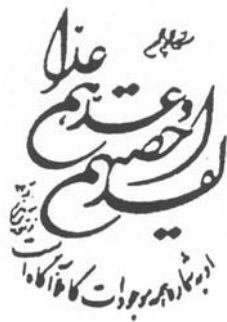 لقد احصیهم
وعدهم
عدّا
او به شماره همه موجودات کاملا آگاه است